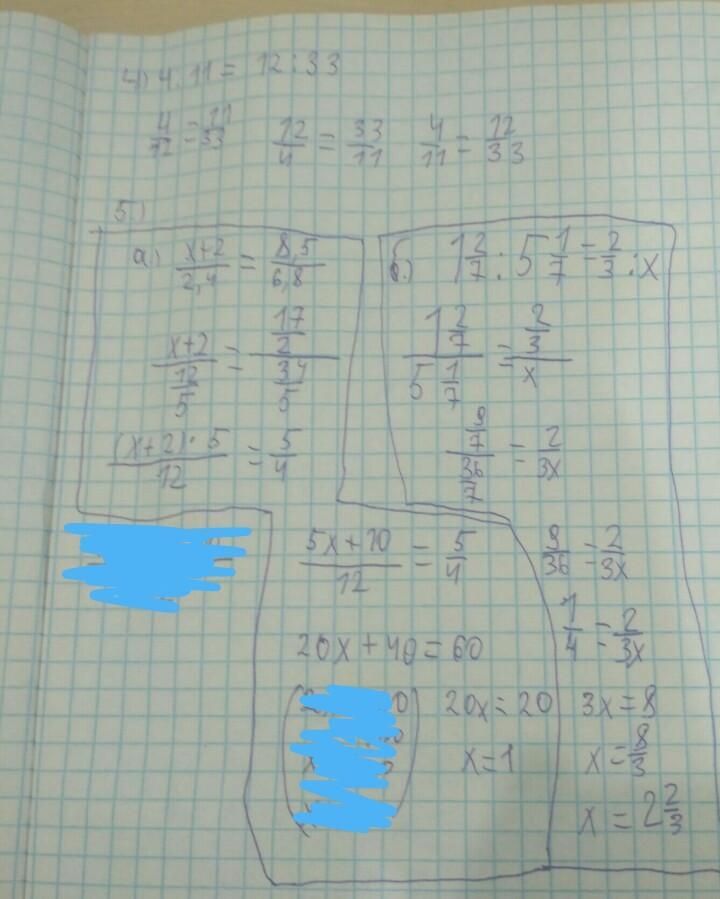 4) 4:11 = 12:33
4/12 = 11/33 12/4 = 33/11 4/11 = 12/33
5.)
а) (x+2)/2,4 = 8,5/6,8
(x+2)/(12/5) = (17/2)/(34/5)
((x+2)·5)/12 = 5/4
(5x+10)/12 = 5/4
20x + 40 = 60
20x = 20
x = 1
б.) 1 2/7 : 5 1/7 = 2/3 : x
(1 2/7)/(5 1/7) = (2/3)/x
(9/7)/(36/7) = 2/(3x)
9/36 = 2/(3x)
1/4 = 2/(3x)
3x = 8
x = 8/3
x = 2 2/3